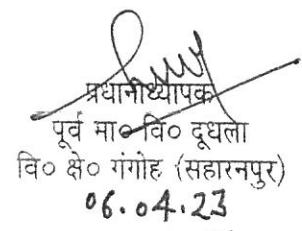 प्रधानाध्यापक
पूर्व मा० वि० दूधला
वि० क्षे० गंगोह (सहारनपुर)
06.04.23